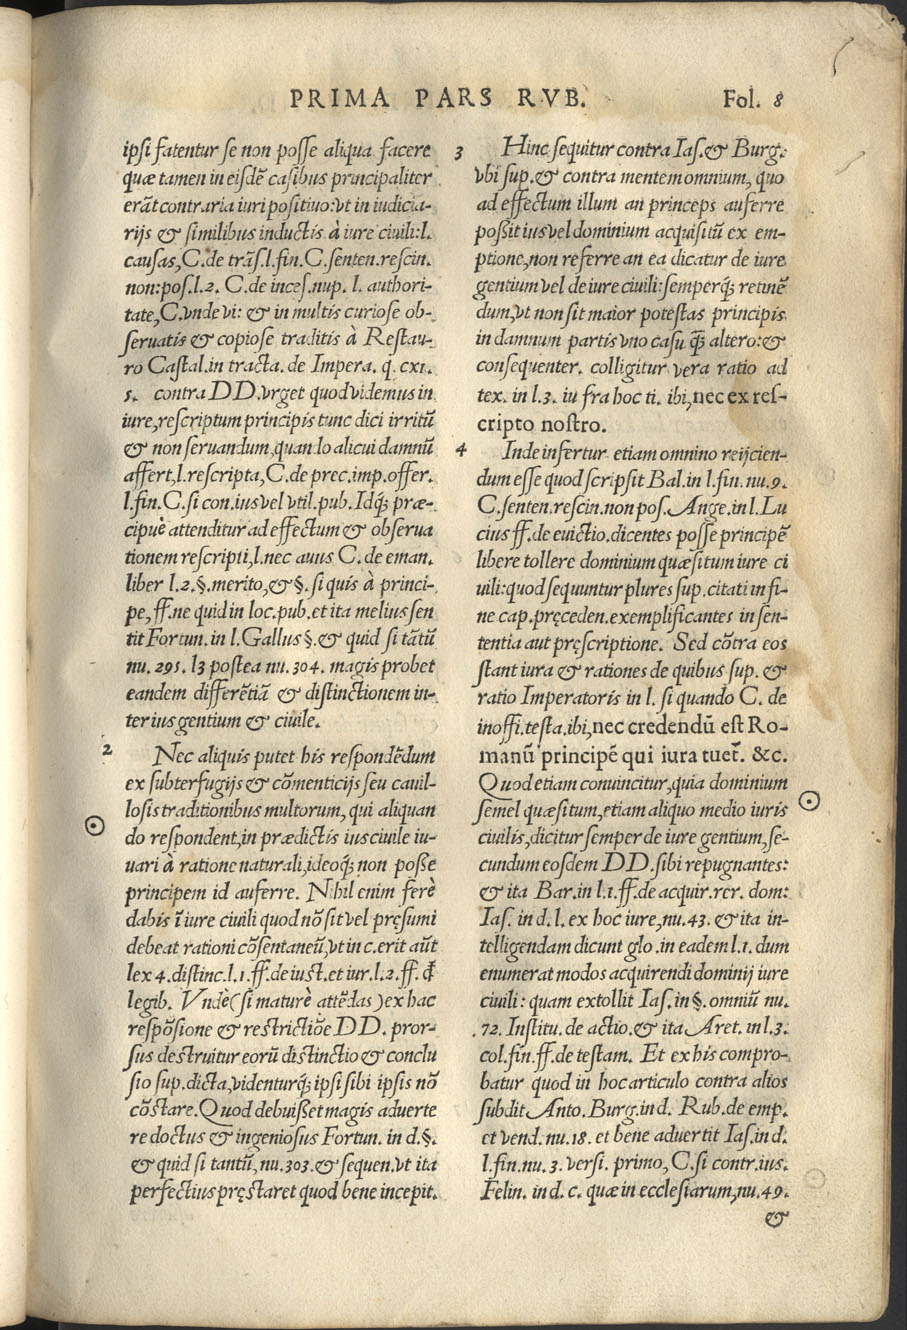 PRIMA PARS RVB. Fol. 8
ipsi fatentur se non posse aliqua facere
quæ tamen in eisdē casibus principaliter
erāt contraria iuri positiuo: vt in iudicia-
rijs & similibus inductis. à iure ciuili: l.
causas, C. de trās. l. fin. C. senten. rescin.
non: pos. l. 2. C. de inces. nup. l. authori-
tate, C. vnde vi: & in multis curiose ob-
seruatis & copiose traditis à Restau-
ro Castal. in tracta. de Impera. q. cxi.
5. contra DD. vrget quod videmus in
iure, rescriptum principis tunc dici irritū
& non seruandum, quando alicui damnū
affert, l. rescripta, C. de prec. imp. offer.
l. fin. C. si con. ius vel vtil. pub. Idq́; præ-
cipuè attenditur ad effectum & obserua
tionem rescripti, l. nec auus C. de eman.
liber l. 2. §. merito, & §. si quis à princi-
pe, ff. ne quid in loc. pub. et ita melius sen
tit Fortun. in l. Gallus §. & quid si tātū
nu. 295. l3 postea nu. 304. magis probet
eandem differētiā & distinctionem in-
ter ius gentium & ciuile.
2 Nec aliquis putet his respondēdum
ex subterfugijs & cōmenticijs seu cauil-
losis traditionibus multorum, qui aliquan
do respondent, in prædictis ius ciuile iu-
uari à ratione naturali, ideoq́; non posse
principem id auferre. Nihil enim ferè
dabis ī iure ciuili quod nō sit vel pręsumi
debeat rationi cōsentaneū, vt in c. erit aūt
lex 4. distinc. l. 1. ff. de iust. et iur. l. 2. ff. đ
legib. Vndè (si maturè attēdas) ex hac
respōsione & restrictiōe DD. pror-
sus destruitur eorū distinctio & conclu
sio sup. dicta, videnturq́; ipsi sibi ipsis nō
cōstare. Quod debuisset magis aduerte
re doctus & ingeniosus Fortun. in d. §.
& quid si tantū, nu. 303. & sequen. vt ita
perfectius pręstaret quod bene incepit.
3 Hinc sequitur contra Ias. & Burg.
vbi sup. & contra mentem omnium, quo
ad effectum illum an princeps auferre
possit ius vel dominium acquisitū ex em-
ptione, non referre an ea dicatur de iure
gentium vel de iure ciuili: semperq́; retinē
dum, vt non sit maior potestas principis
in damnum partis vno casu q̄; altero: &
consequenter. colligitur vera ratio ad
tex. in l. 3. in fra hoc ti. ibi, nec ex res-
cripto nostro.
4 Inde infertur etiam omnino reijcien-
dum esse quod scripsit Bal. in l. fin. nu. 9.
C. senten. rescin. non pos. Ange. in l. Lu
cius ff. de euictio. dicentes posse principē
libere tollere dominium quæsitum iure ci
uili: quod sequuntur plures sup. citati in fi-
ne cap. pręceden. exemplificantes in sen-
tentia aut pręscriptione. Sed cōtra eos
stant iura & rationes de quibus sup. &
ratio Imperatoris in l. si quando C. de
inoffi. testa. ibi, nec credendū est Ro-
manū principē qui iura tuet̄. &c.
Quod etiam conuincitur, quia dominium
semel quæsitum, etiam aliquo medio iuris
ciuilis, dicitur semper de iure gentium, se-
cundum eosdem DD. sibi repugnantes:
& ita Bar. in l. 1. ff. de acquir. rer. dom:
Ias. in d. l. ex hoc iure, nu. 43. & ita in-
telligendam dicunt glo. in eadem l. 1. dum
enumerat modos acquirendi dominij iure
ciuili: quam extollit Ias. in §. omniū nu.
72. Institu. de actio. & ita Aret. in l. 3.
col. fin. ff. de testam. Et ex his compro-
batur quod in hoc articulo contra alios
subdit Anto. Burg. in d. Rub. de emp.
et vend. nu. 18. et bene aduertit Ias. in d.
l. fin. nu. 3. versi. primo, C. si contr. ius.
Felin. in d. c. quæ in ecclesiarum, nu. 49.
&